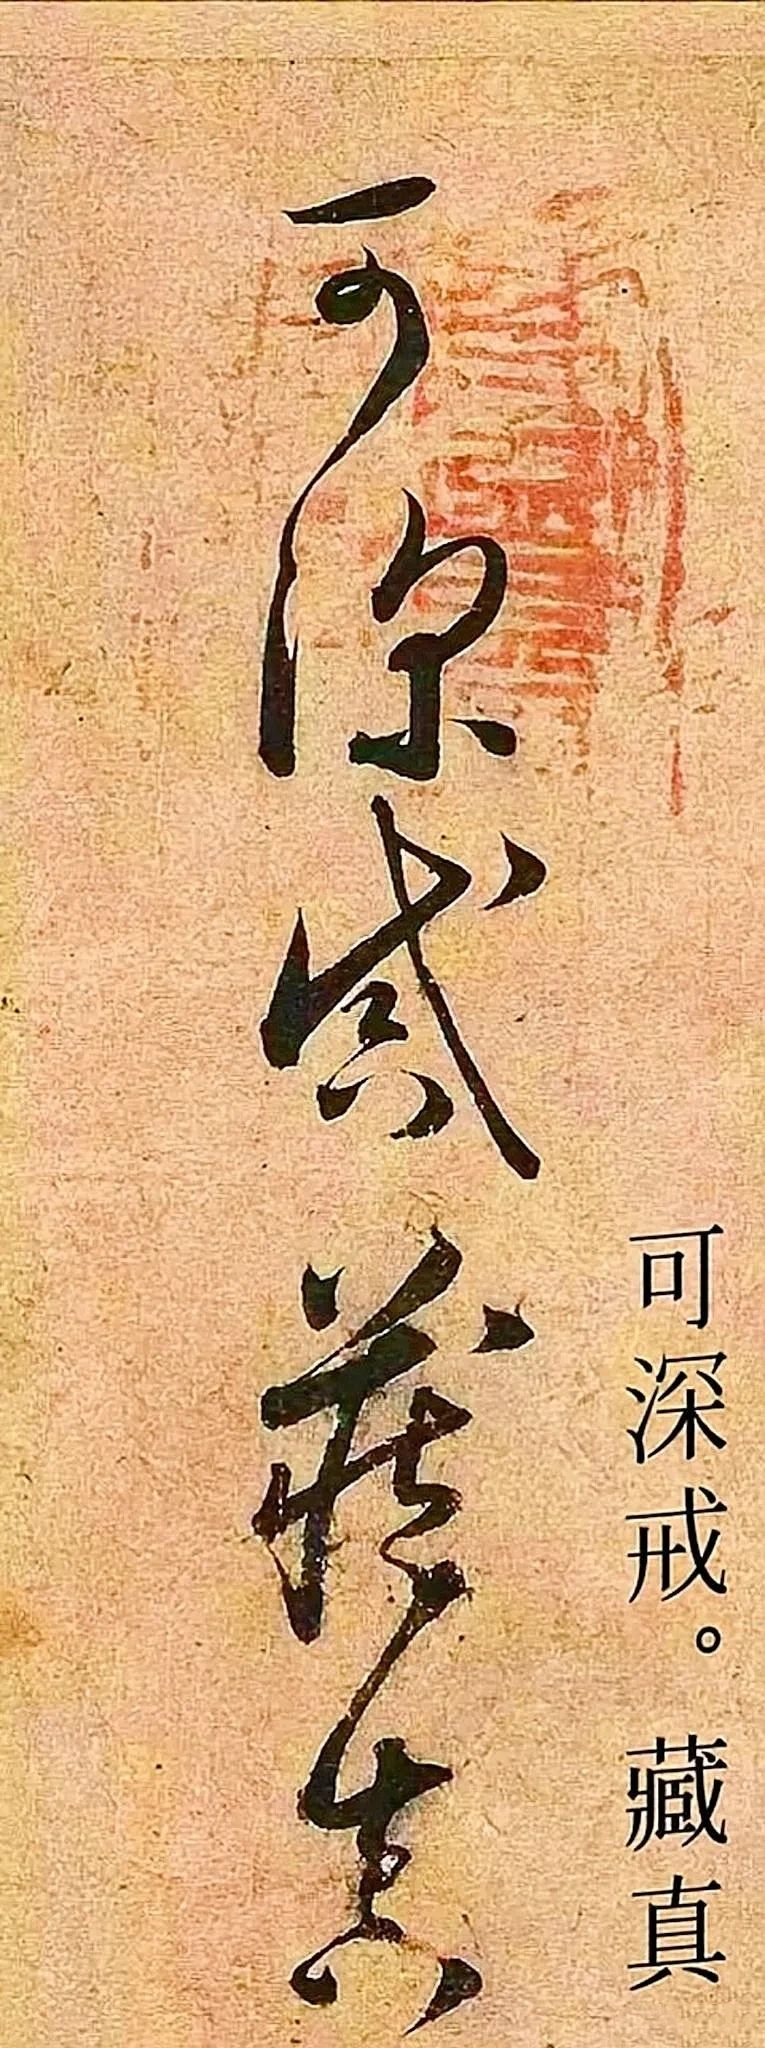 可深戒。藏真
可深戒藏真